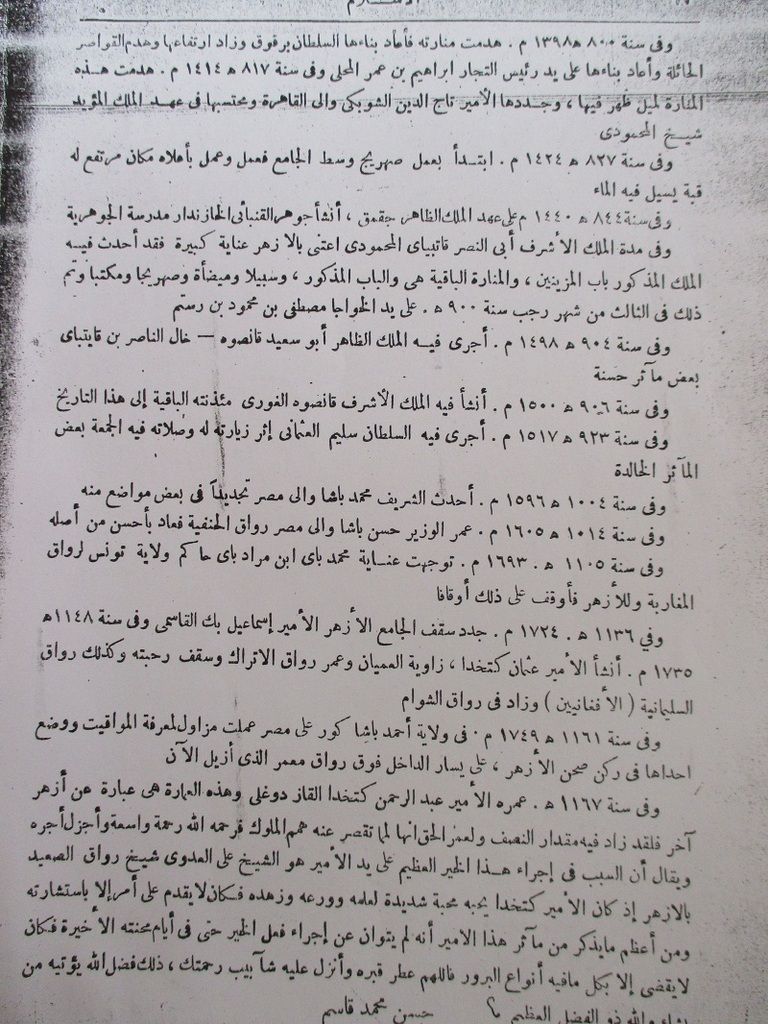 وفى سنة ٨٠٠ ه ١٣٩٨ م . هدمت منارته فأعاد بناءها السلطان برقوق وزاد ارتفاعها وهدم القواصر
الحائلة وأعاد بناءها على يد رئيس التجار ابراهيم بن عمر المحلى وفى سنة ٨١٧ ه ١٤١٤ م . هدمت هذه
المنارة لميل ظهر فيها ، وجددها الأمير تاج الدين الشوبكى والى القاهرة ومحتسبها فى عهد الملك المؤيد
شيخ المحمودى
وفى سنة ٨٢٧ ه ١٤٢٤ م . ابتدأ بعمل صهريج وسط الجامع فعمل وعمل بأعلاه مكان مرتفع له
قبة يسيل فيه الماء
وفى سنة ٨٤٤ ه ١٤٤٠ م على عهد الملك الظاهر جقمق ، أنشأ جوهر القنبائى الخازندار مدرسة الجوهرية
وفى مدة الملك الأشرف أبى النصر قاتيباى المحمودى اعتنى بالازهر عناية كبيرة فقد أحدث فيه
الملك المذكور باب المزينين ، والمنارة الباقية هى والباب المذكور ، وسبيلا وميضأة وصهريجا ومكتبا وتم
ذلك فى الثالث من شهر رجب سنة ٩٠٠ ه . على يد الخواجا مصطفى بن محمود بن رستم
وفى سنة ٩٠٤ ه ١٤٩٨ م . أجرى فيه الملك الظاهر أبو سعيد قانصوه — خال الناصر بن قايتباى
بعض مآثر حسنة
وفى سنة ٩٠٦ ه ١٥٠٠ م . أنشأ فيه الملك الأشرف قانصوه الغورى مئذنته الباقية إلى هذا التاريخ
وفى سنة ٩٢٣ ه ١٥١٧ م . أجرى فيه السلطان سليم العثمانى إثر زيارته له وصلاته فيه الجمعة بعض
المآثر الخالدة
وفى سنة ١٠٠٤ ه ١٥٩٦ م . أحدث الشريف محمد باشا والى مصر تجديداً فى بعض مواضع منه
وفى سنة ١٠١٤ ه ١٦٠٥ م . عمر الوزير حسن باشا والى مصر رواق الحنفية فعاد بأحسن من أصله
وفى سنة ١١٠٥ ه . ١٦٩٣ م . توجهت عناية محمد باى ابن مراد باى حاكم ولاية تونس لرواق
المغاربة وللأزهر فأوقف على ذلك أوقافا
وفي ١١٣٦ ه . ١٧٢٤ م . جدد سقف الجامع الأزهر الأمير إسماعيل بك القاسمى وفى سنة ١١٤٨ه
١٧٣٥ م . أنشأ الأمير عثمان كتخدا ، زاوية العميان وعمر رواق الاتراك وسقف رحبته وكذلك رواق
السليمانية ( الأفغانيين ) وزاد فى رواق الشوام
وفى سنة ١١٦١ ه ١٧٤٩ م . فى ولاية أحمد باشا كور على مصر عملت مزاول لمعرفة المواقيت ووضع
احداها فى ركن صحن الأزهر ، على يسار الداخل فوق رواق معمر الذى أزيل الآن
وفى سنة ١١٦٧ ه . عمره الأمير عبد الرحمن كتخدا القاز دوغلى وهذه العمارة هى عبارة عن أزهر
آخر فلقد زاد فيه مقدار النصف ولعمر الحق انها لما تقصر عنه همم الملوك فرحمه الله رحمة واسعة وأجزل أجره
ويقال أن السبب فى إجراء هذا الخير العظيم على يد الأمير هو الشيخ على العدوى شيخ رواق الصعيد
بالازهر إذ كان الأمير كتخدا يحبه محبة شديدة لعلمه وورعه وزهده فكان لا يقدم على أمر إلا باستشارته
ومن أعظم مايذكر من مآثر هذا الامير أنه لم يتوان عن إجراء فعل الخير حتى فى أيام محنته الأخيرة فكان
لايقضى إلا بكل مافيه أنواع البرور فاللهم عطر قبره وأنزل عليه شآبيب رحمتك ، ذلك فضل الله يؤتيه من
يشاء والله ذو الفضل العظيم حسن محمد قاسم